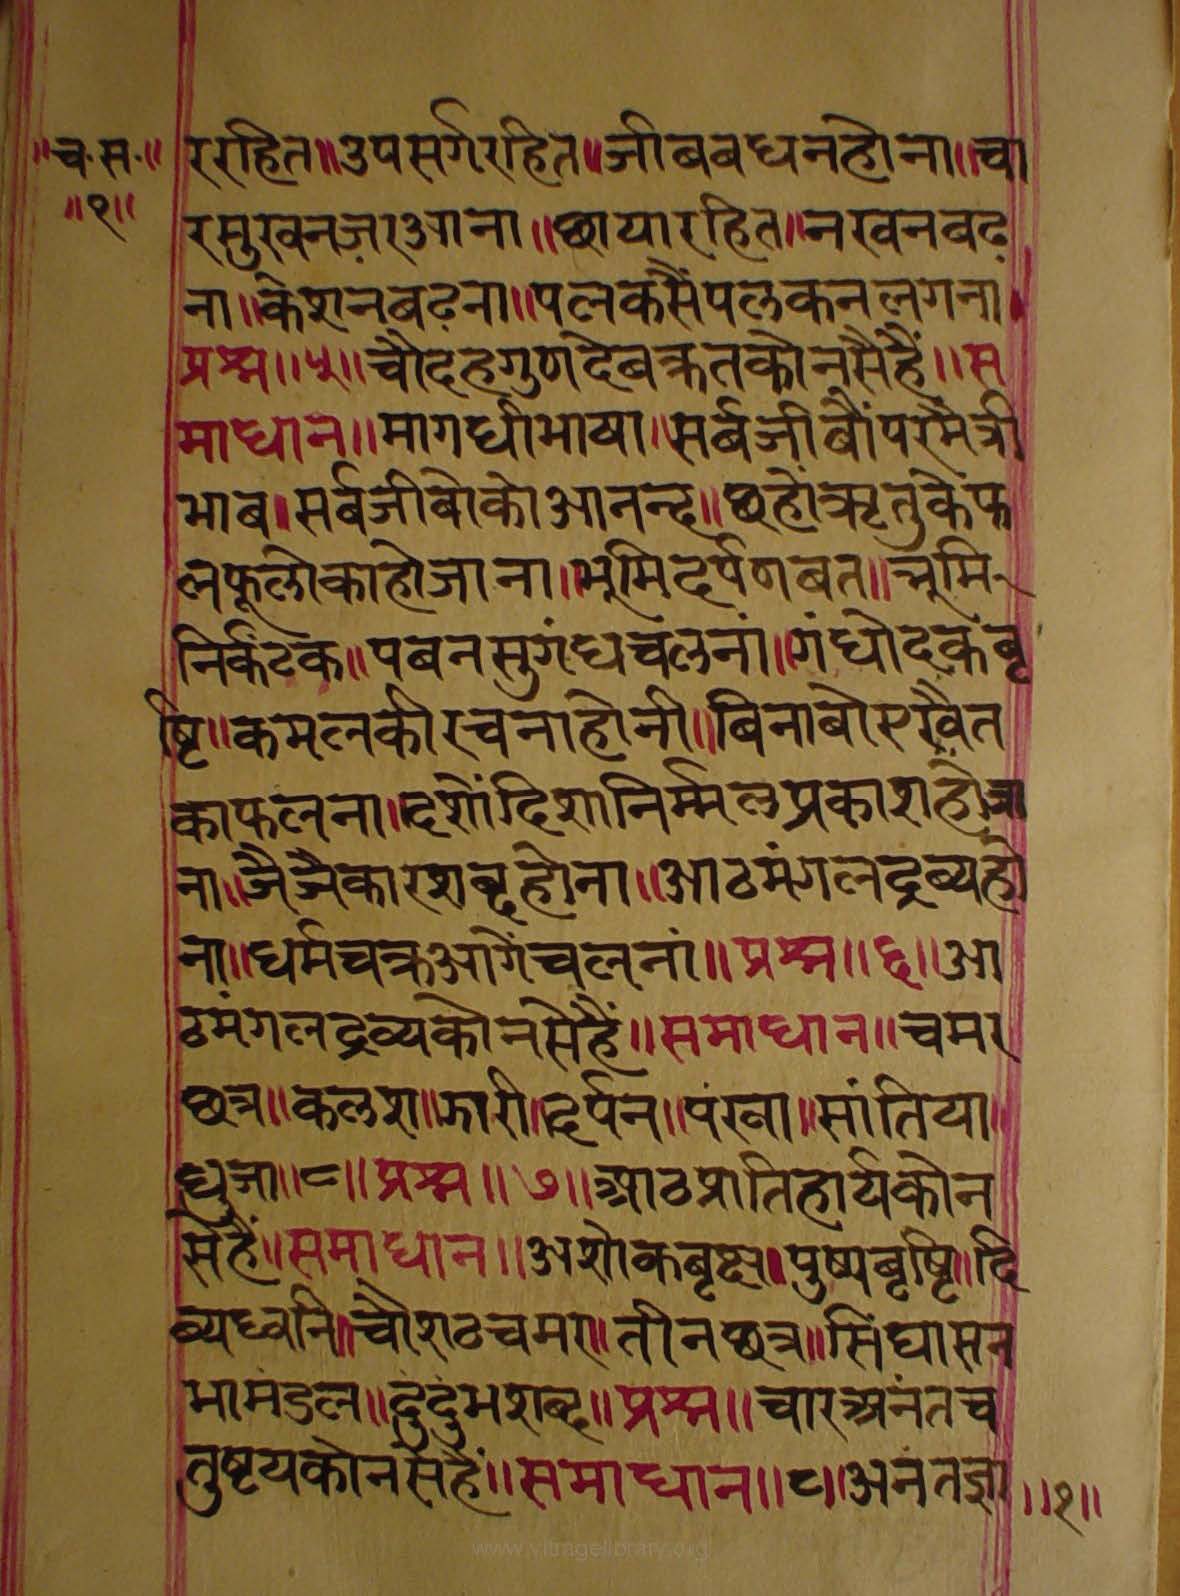 ॥च.स.॥ ररहित॥उपसर्गरहित॥जीबबधनहोना॥चा
॥१॥ रमुखनज़रआना॥छायारहित॥नखनबढ़
ना॥केशनबढ़ना॥पलकसैंपलकनलगना॥
प्रश्न॥५॥चौदहगुणदेबक्रतकौनसैंहैं॥स
माधान॥मागधीभाषा॥सर्बजीबौंपरमैत्री
भाब॥सर्बजीबोकोआनन्द॥छहोंऋतुकेफ
लफूलोकाहोजाना॥भूमिदर्पणबत॥भूमि-
निर्कंटक॥पबनसुगंधचलनां॥गंधोदकबृ
ष्टि॥कमलकीरचनाहोनी॥बिनाबोएखैत
काफलना॥दशोंदिशानिर्म्मलप्रकाशहोजा
ना॥जैजैकारशब्दहोना॥आठमंगलद्रब्यहो
ना॥धर्मचक्रआगैंचलनां॥प्रश्न॥६॥आ
ठमंगलद्रव्यकोनसेहैं॥समाधान॥चमर
छत्र॥कलश॥झारी॥दर्पन॥पंखा॥सांतिया॥
धुजा॥८॥प्रश्न॥७॥आठप्रातिहार्यकोन
सेहैं॥समाधान॥अशोकबृक्ष॥पुष्पबृष्टि॥दि
ब्यध्वनि॥चौशठचमर॥तीनछत्र॥सिंघासन
भामंडल॥दुंदुंभशब्द॥प्रश्न॥चारअनंतच
तुष्टयकोनसेहैं॥समाधान॥८॥अनंतज्ञा॥१॥
www.vitragelibrary.org